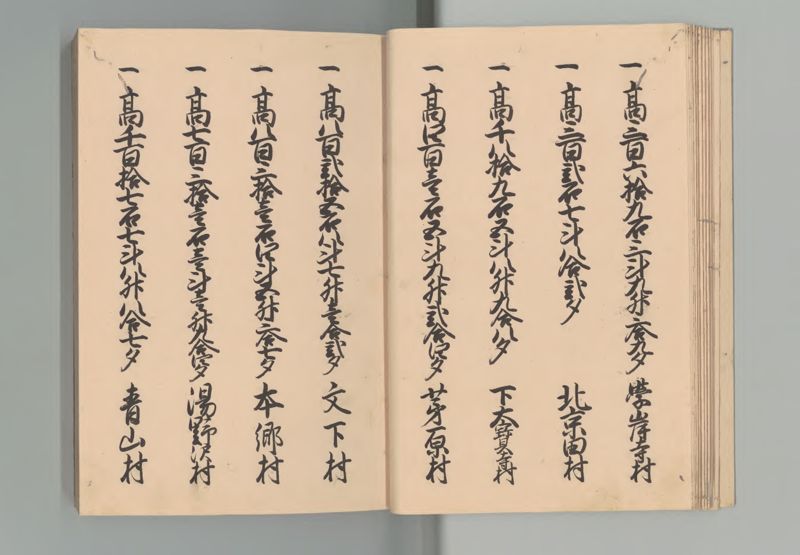 一 高三百六拾九石三斗九升六合九夕 學岸寺村
一 高三百弐石七斗八合弐夕 北京田村
一 高千八拾九石五斗八升九合八夕 下大
一 高四百壱石五斗九升弐合四夕 茅原村
一 高八百弐拾五石八斗七升壱合弐夕 文下村
一 高八百三拾壱石四斗五升六合七夕 本郷村
一 高七百三拾壱石壱斗三升八合四夕 湯野沢村
一 高千百拾七石七斗八升八合七夕 青山村